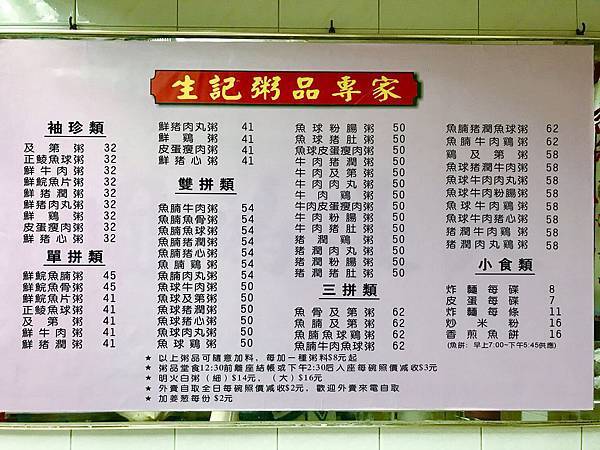 生記粥品專家
袖珍類
及第粥 32
正鯪魚球粥 32
鮮牛肉粥 32
鮮鯇魚片粥 32
鮮豬潤粥 32
鮮豬肉丸粥 32
鮮鷄粥 32
皮蛋瘦肉粥 32
鮮豬心粥 32
單拼類
鮮鯇魚腩粥 45
鮮鯇魚骨粥 45
鮮鯇魚片粥 41
正鯪魚球粥 41
及第粥 41
鮮牛肉粥 41
鮮豬潤粥 41
鮮豬肉丸粥 41
鮮鷄粥 41
皮蛋瘦肉粥 41
鮮豬心粥 41
雙拼類
魚腩牛肉粥 54
魚腩魚骨粥 54
魚腩魚球粥 54
魚腩豬潤粥 54
魚腩豬心粥 54
魚腩鷄粥 54
魚球牛肉粥 50
魚球及第粥 50
魚球豬潤粥 50
魚球豬心粥 50
魚球肉丸粥 50
魚球鷄粥 50
魚球粉腸粥 50
魚球豬肚粥 50
魚球皮蛋瘦肉粥 50
牛肉豬潤粥 50
牛肉及第粥 50
牛肉肉丸粥 50
牛肉鷄粥 50
牛肉皮蛋瘦肉粥 50
牛肉粉腸粥 50
牛肉豬肚粥 50
豬潤鷄粥 50
豬潤肉丸粥 50
豬潤粉腸粥 50
豬潤豬肚粥 50
三拼類
魚骨及第粥 62
魚腩及第粥 62
魚腩魚球鷄粥 62
魚腩牛肉魚球粥 62
魚腩豬潤魚球粥 62
魚腩牛肉鷄粥 62
鷄及第粥 58
魚球豬潤牛肉粥 58
魚球牛肉肉丸粥 58
魚球牛肉粉腸粥 58
魚球牛肉鷄粥 58
魚球牛肉豬心粥 58
豬潤牛肉鷄粥 58
豬潤肉丸鷄粥 58
小食類
炸麵每碟 8
皮蛋每碟 7
炸麵每條 11
炒米粉 16
香煎魚餅 16
(魚餅: 早上7:00~下午5:45供應)
★ 以上粥品可隨意加料, 每加一種粥料$8元起
★ 粥品堂食12:30前離座結帳或下午2:30后入座每碗照價減收$3元
★ 明火白粥(細)$14元, (大)$16元
★ 外賣自取全日每碗照價減收$2元, 歡迎外賣來電自取
★ 加姜葱每份 $2元